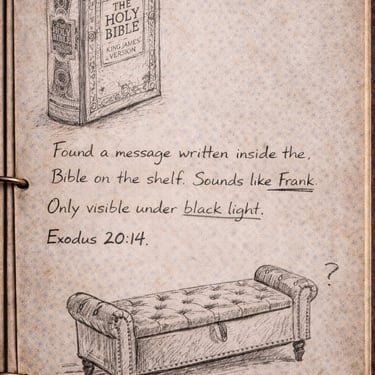 THE
HOLY
BIBLE
KING JAMES
VERSION
Found a message written inside the.
Bible on the shelf. Sounds like Frank.
Only visible under black light.
Exodus 20:14.
?